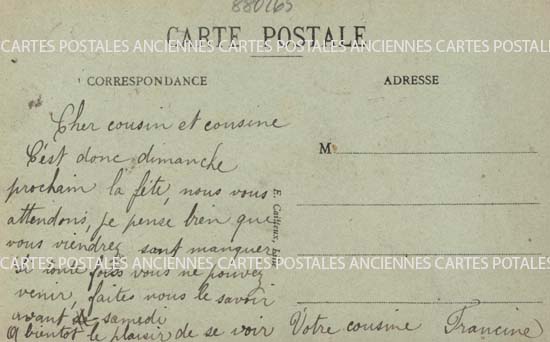 880165
CARTE POSTALE
CARTES POSTALES ANCIENNES CARTES POSTALES ANCIENNES CARTES POSTALES
CORRESPONDANCE
ADRESSE
Cher cousin et cousine
C'est donc dimanche
prochain la fête, nous vous
attendons, je pense bien que
vous viendrez sans manquer
Si toute fois vous ne pouvez
venir, faites nous le savoir
avant samedi
A bientot le plaisir de se voir Votre cousine Francine
M
CARTES POSTALES ANCIENNES CARTES POSTALES ANCIENNES CARTES POSTALES